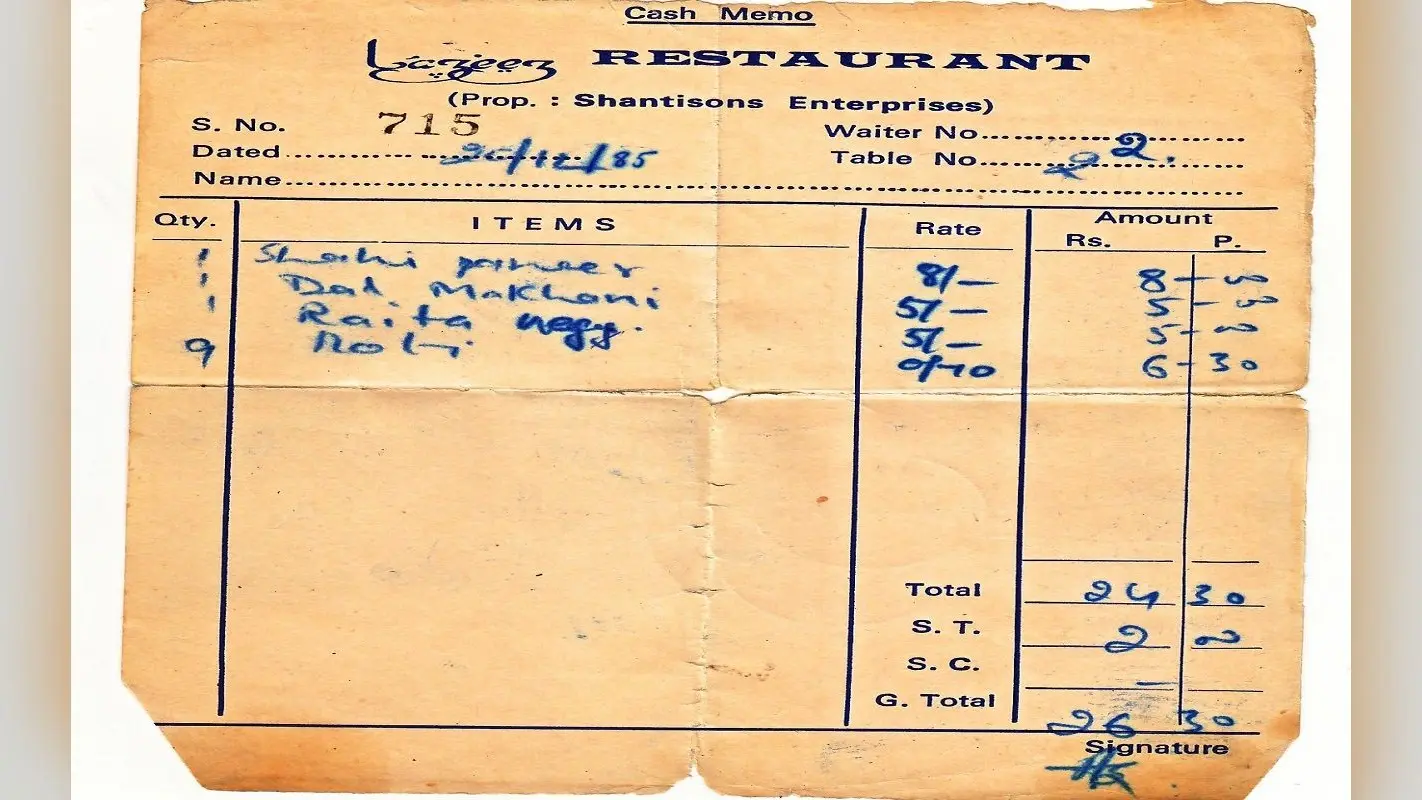 Cash Memo
Lazeez RESTAURANT
(Prop. : Shantisons Enterprises)
S. No. 715 Waiter No.
Dated /12/85 Table No. 2.
Name
Qty. ITEMS Rate Amount
Rs. P.
1 Shahi paneer 8/- 8-00
1 Dal Makhani 5/- 5-00
1 Raita vegg. 5/- 5-00
9 Roti 0/70 6-30
Total 24 30
S. T. 2 00
S. C. -
G. Total 26 30
Signature